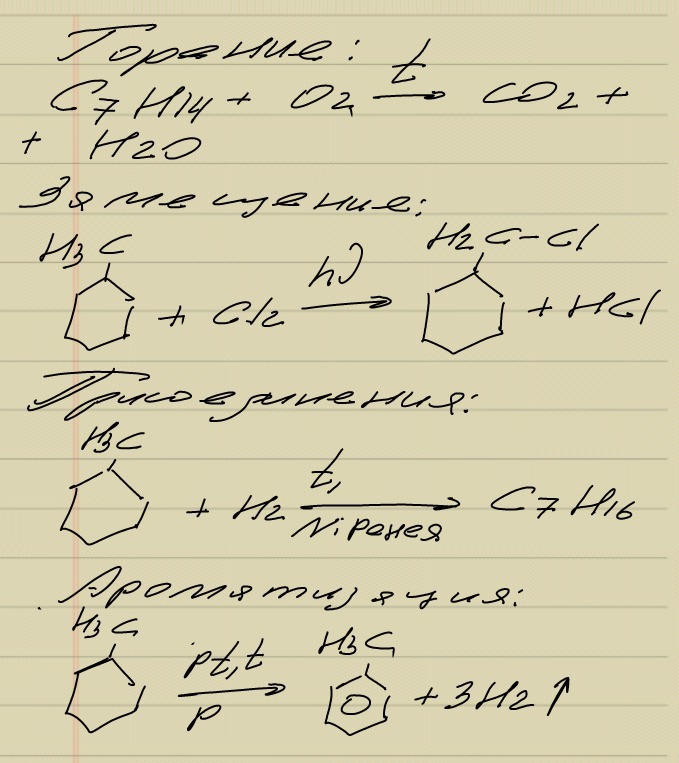 Горение:
C7H14 + O2 t → CO2 +
+ H2O
Замещение:
H3C + Cl2 hν → H2C-Cl + HCl
Присоединения:
H3C + H2 t, Ni Ренея → C7H16
Ароматизация:
H3C Pt, t P → H3C + 3H2 ↑